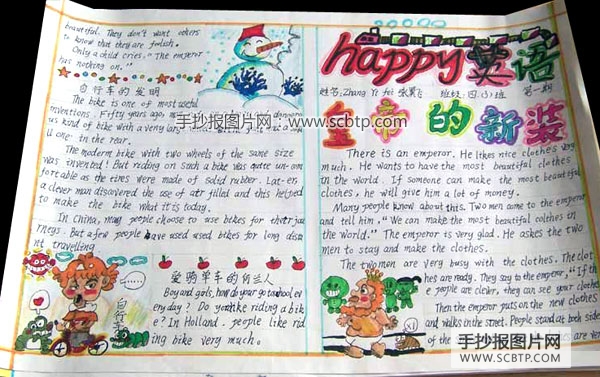 beautiful. They don't want others
to know that they are foolish.
Only a child cries." "The emperor
has nothing on."
自行车的发明
The bike is one of most useful
inventions. Fifty years ago,
us kind of bike with a very large
one in the rear.
The moderm bike with two wheels of the same size
was invented! But riding on such a bike was quite un-com
fortable as the tires were made of solid rubber. Lat-er,
a clever man disovered the use of air filled and this helped
to make the bike what it is today.
In China, many people choose to use bikes for their jour
neys. But a few people have used used bikes for long dista
nt travelling
爱骑单车的荷兰人
Boy and girls, how do your go to school ev
ery day? Do you like riding a bik
e? In Holland, people like rid
ing bike very much.
自行车
happy 英语
姓名: Zhang Yi fei 张翼飞 班级: 四.小班 第一期
皇帝的新装
There is an emperor. He likes nice clothes very
much. He wants to have the most beautiful clothes
in the world. If someone can make the most beautiful
clothes, he will give him a lot of money.
Many people know about this. Two men come to the emperor
and tell him, "We can make the most beautiful colthes in
the world." The emperor is very glad. He askes the two
men to stay and make the clothes.
The two men are very busy with the clothes. The clot
hes are ready. They say to the emperor, "If th
e people are clever, they can see your clothes
Then the emperor puts on the new clothes
and walks in the street. People stand at both side
of the
are ver
手抄报图片网：www.scbtp.com
手抄报图片网
WWW.SCBTP.COM